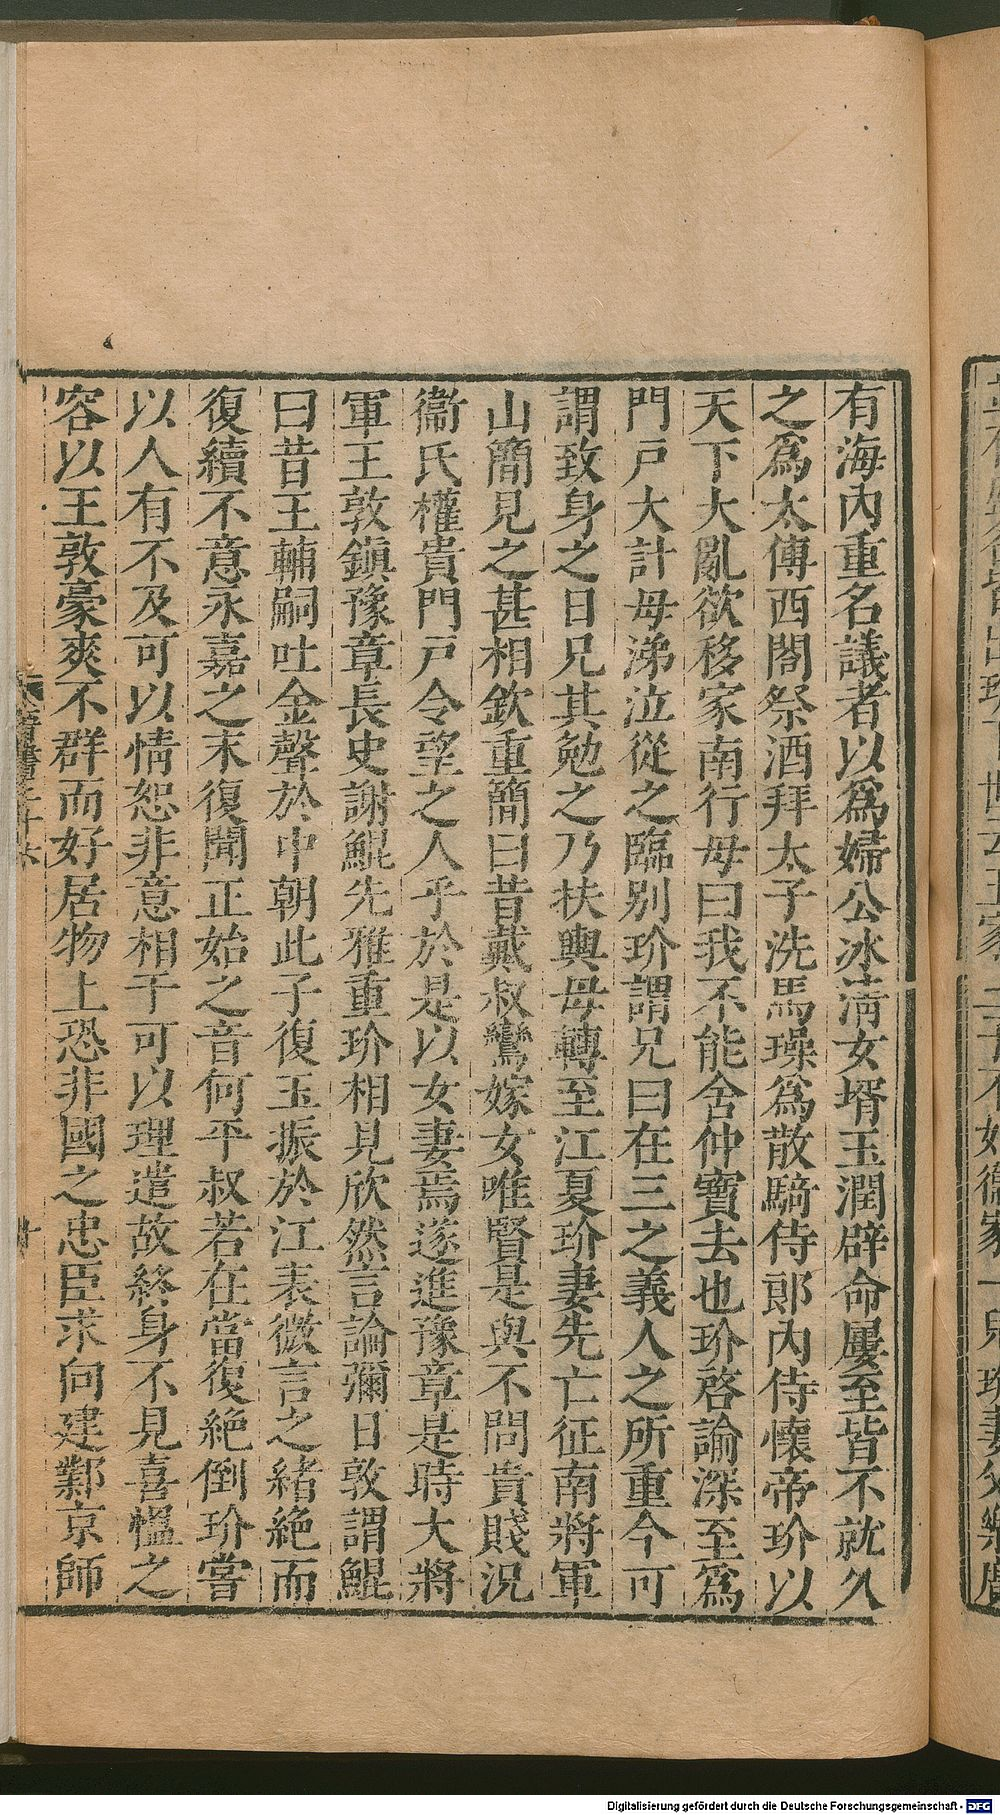 有海內重名議者以爲婦公冰淸女壻玉潤辟命屢至皆不就久
之爲太傅西閤祭酒拜太子洗馬璪爲散騎侍郞內侍懷帝玠以
天下大亂欲移家南行母曰我不能舍仲寶去也玠啓諭深至爲
門戸大計母涕泣從之臨別玠謂兄曰在三之義人之所重今可
謂致身之日兄其勉之乃扶輿母轉至江夏玠妻先亡征南將軍
山簡見之甚相欽重簡曰昔戴叔鸞嫁女唯賢是與不問貴賤況
衞氏權貴門戸令望之人乎於是以女妻焉遂進豫章是時大將
軍王敦鎭豫章長史謝鯤先雅重玠相見欣然言論彌日敦謂鯤
曰昔王輔嗣吐金聲於中朝此子復玉振於江表微言之緒絶而
復續不意永嘉之末復聞正始之音何平叔若在當復絶倒玠嘗
以人有不及可以情恕非意相干可以理遣故終身不見喜慍之
容以王敦豪爽不群而好居物上恐非國之忠臣求向建鄴京師
Digitalisierung gefördert durch die Deutsche Forschungsgemeinschaft - DFG